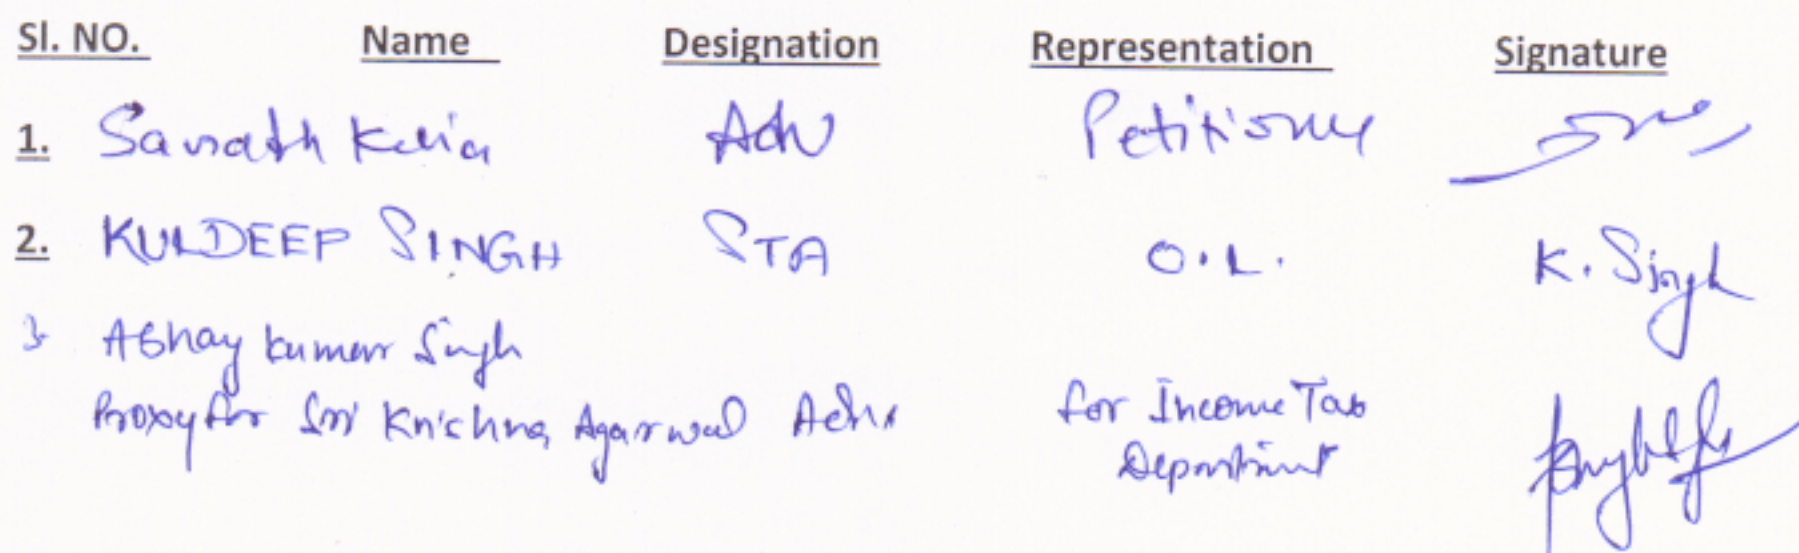 Sl. NO. Name Designation Representation Signature
1. Adv Petitioner
2. KULDEEP SINGH STA O.L. K. Singh
3. Abhay kumar Singh
Proxy for Sri Krishna Agarwal Adv. for Income Tax
Department